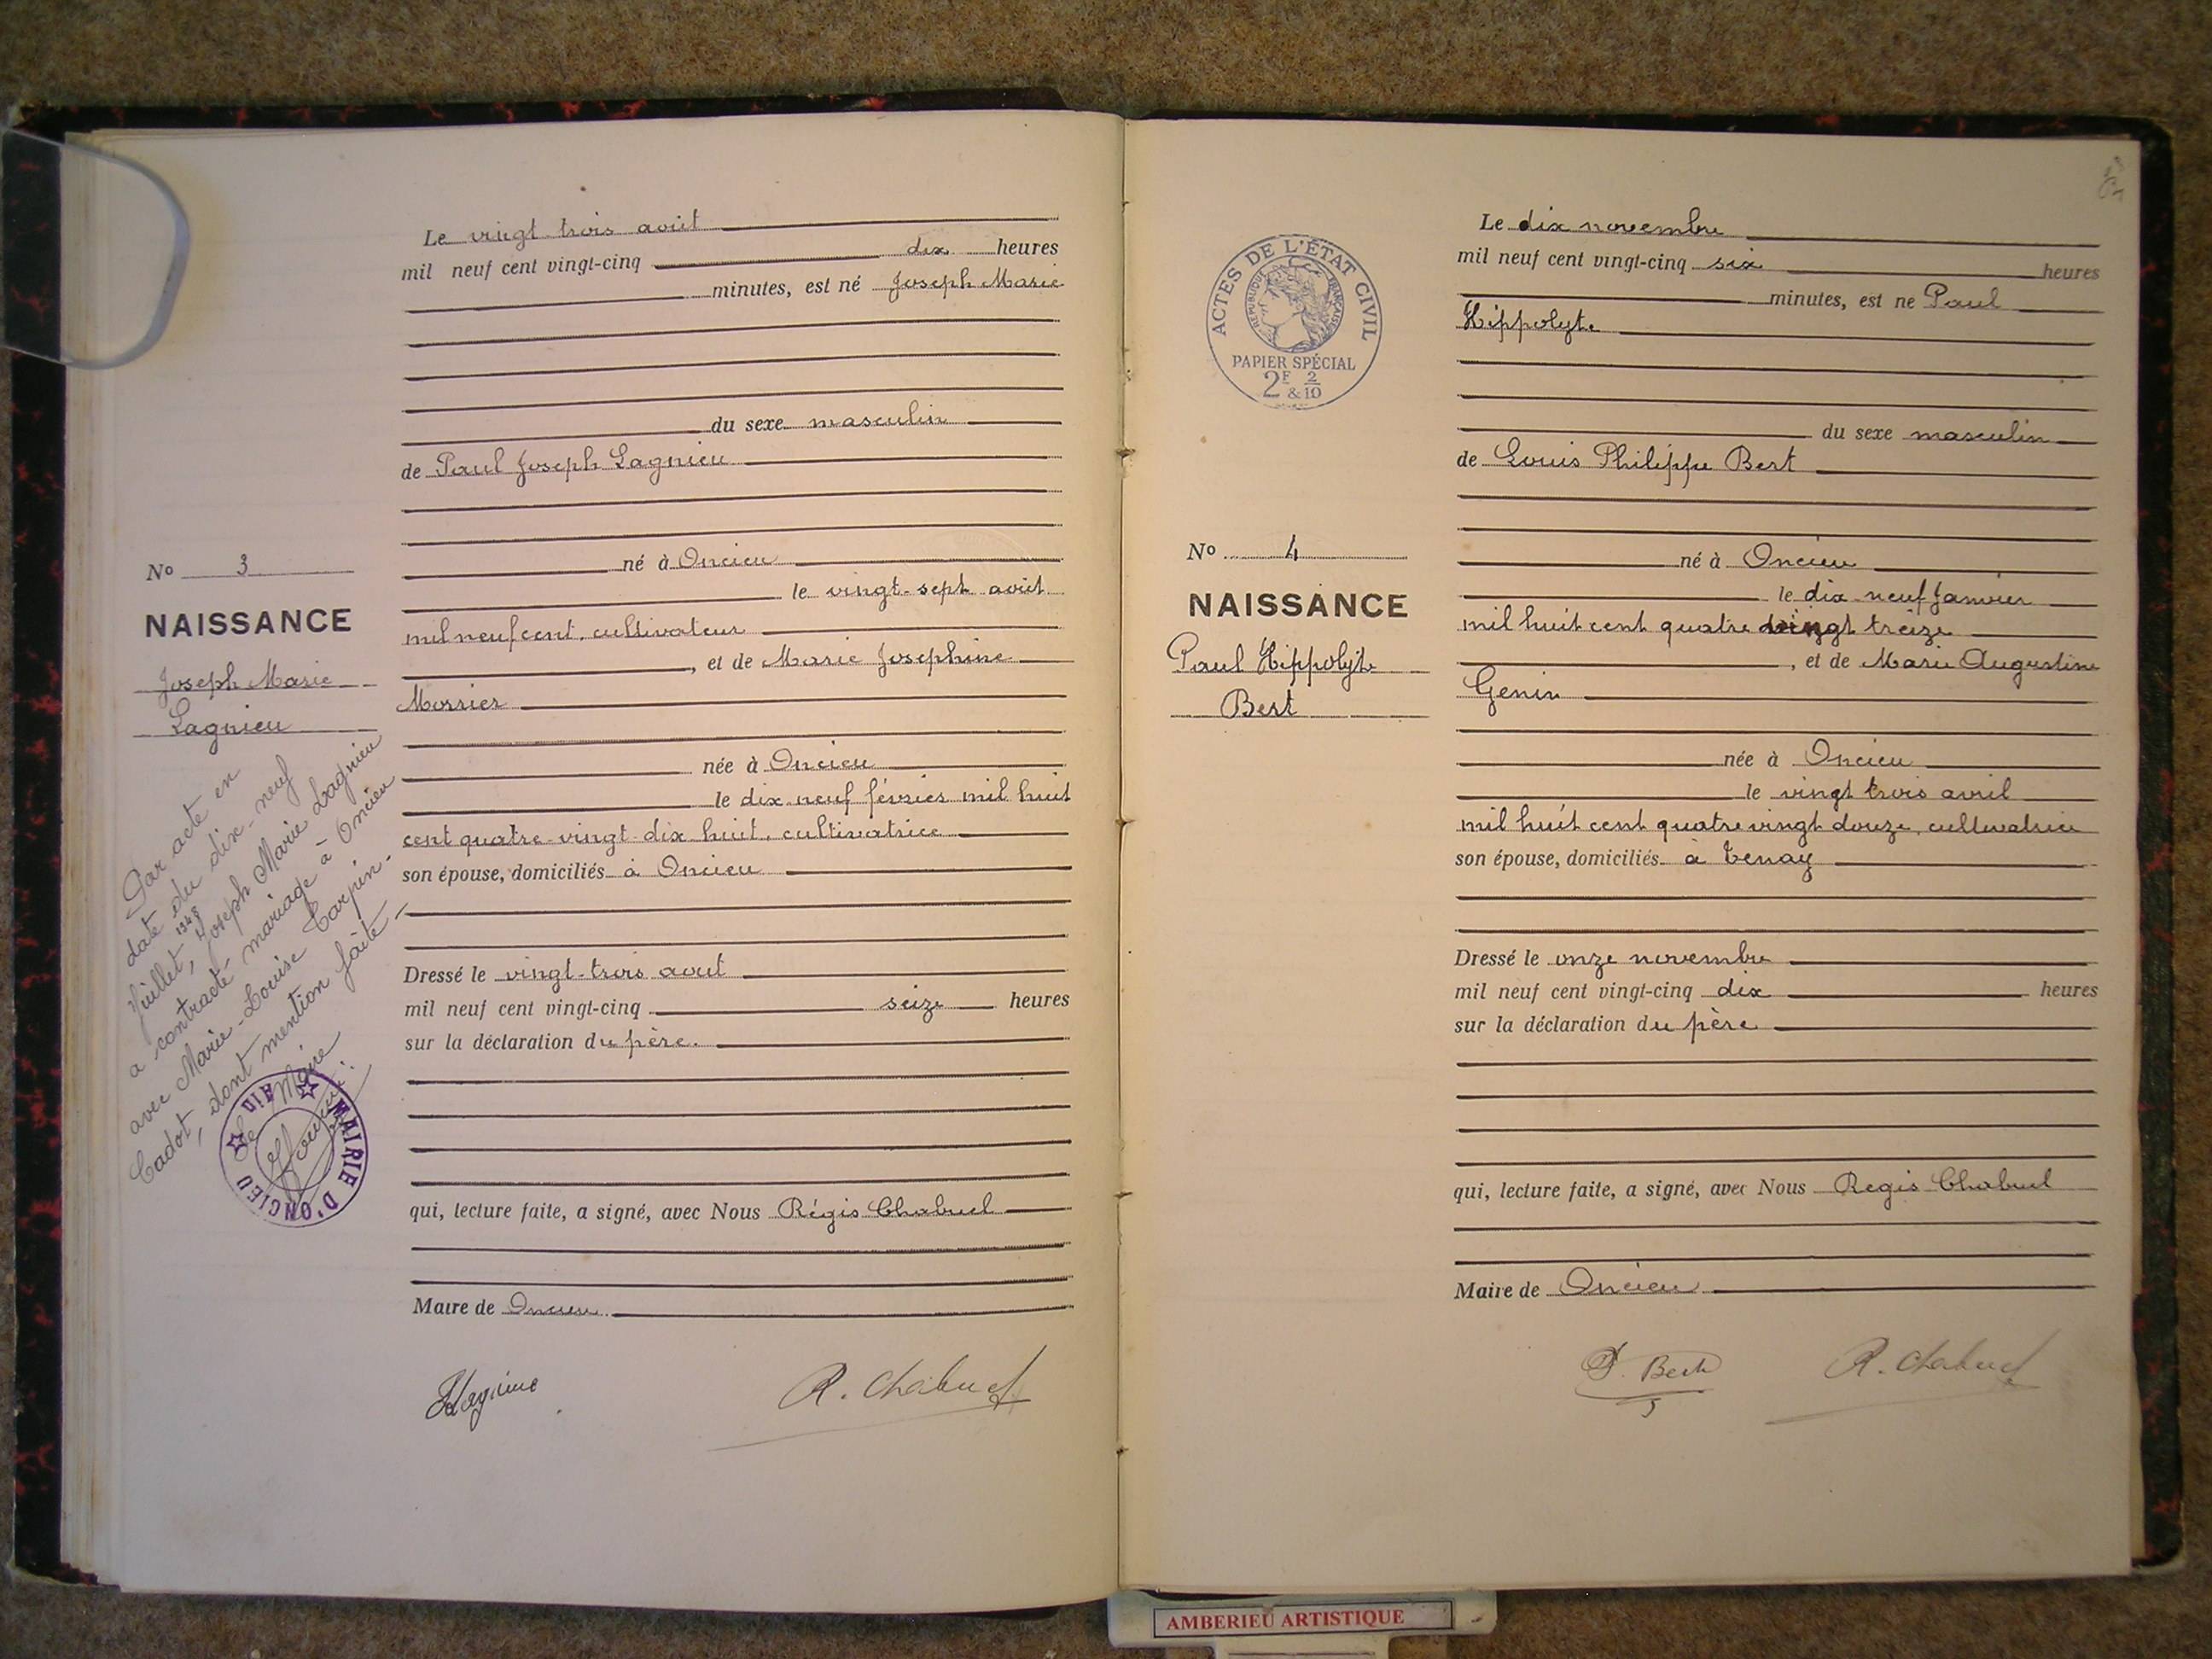 Le vingt-trois août
mil neuf cent vingt-cinq dix heures
minutes, est né Joseph Marie
du sexe masculin
de Paul Joseph Lagnieu
né à Oncieu
le vingt-sept août
mil neuf cent, cultivateur
, et de Marie Joséphine
née à Oncieu
le dix-neuf février mil huit
cent quatre-vingt-dix huit, cultivatrice
son épouse, domiciliés à Oncieu
Dressé le vingt-trois août
mil neuf cent vingt-cinq seize heures
sur la déclaration du père.
qui, lecture faite, a signé, avec Nous Régis Chabuel
Maire de Oncieu
R. Chabuel
No 3
NAISSANCE
Joseph Marie
Lagnieu
Par acte en
date du dix-neuf
Juillet, Joseph Marie Lagnieu
a contracté mariage à Oncieu
avec Marie-Louise Carpin-
Cadot, dont mention faite-
Le Maire
MAIRIE D'ONCIEU
AIN
ACTES DE L'ÉTAT CIVIL
REPUBLIQUE FRANÇAISE
PAPIER SPÉCIAL
2F & 2/10
No 4
NAISSANCE
Paul Hippolyte
Bert
Le dix novembre
mil neuf cent vingt-cinq six heures
minutes, est né Paul
Hippolyte
du sexe masculin
de Louis Philippe Bert
né à Oncieu
le dix neuf Janvier
mil huit cent quatre vingt treize
, et de Marie Augustine
Genin
née à Oncieu
le vingt trois avril
mil huit cent quatre vingt douze, cultivatrice
son épouse, domiciliés à Tenay
Dressé le onze novembre
mil neuf cent vingt-cinq dix heures
sur la déclaration du père
qui, lecture faite, a signé, avec Nous Regis Chabuel
Maire de Oncieu
Bert
R. Chabuel
AMBERIEU ARTISTIQUE